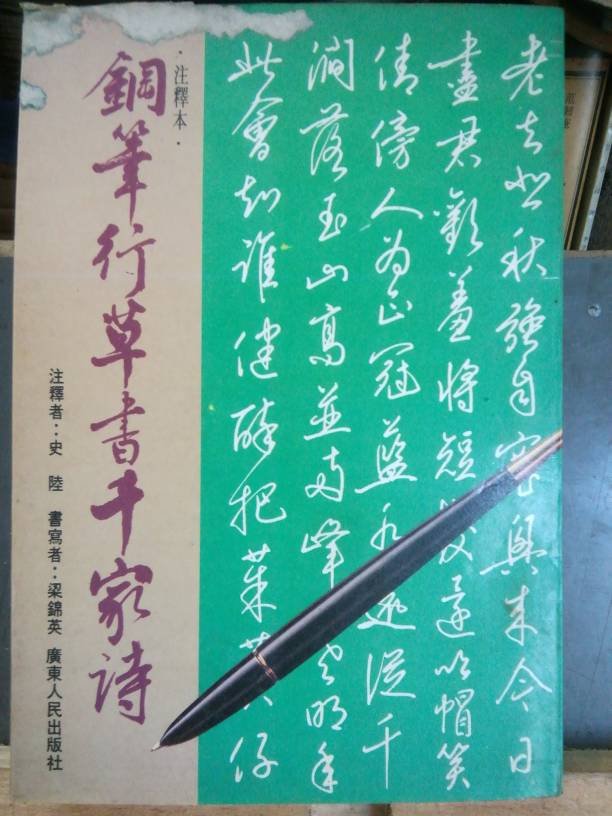 老去悲秋强自寬興來今日
盡君歡羞將短髮還吹帽笑
倩傍人为正冠藍水遠從千
澗落玉山高並兩峰寒明年
此會知誰健醉把茱萸仔
·注釋本·
鋼筆行草書千家詩
注釋者：史 陸 書寫者：梁錦英 廣東人民出版社